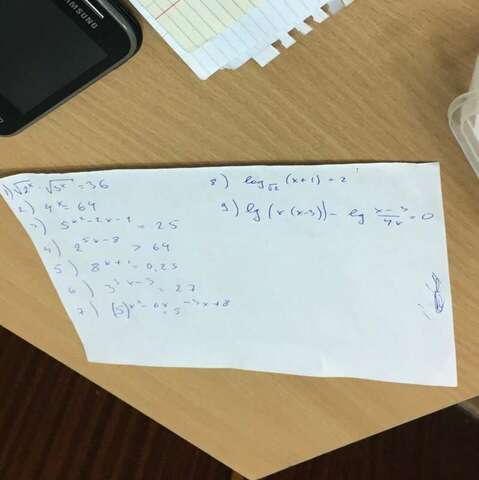 SAMSUNG
1) √2ˣ · √3ˣ = 36
2) 4ˣ = 64
3) 5^(x²-2x-1) = 25
4) 2^(5x-8) > 64
5) 8^(x+1) = 0,25
6) 3^(3x-3) = 27
7) (5)^(x²-6x) = 5^(-3x+8)
8) log_√2 (x+1) = 2
9) lg(x(x-3)) - lg (x-3)/(4x) = 0